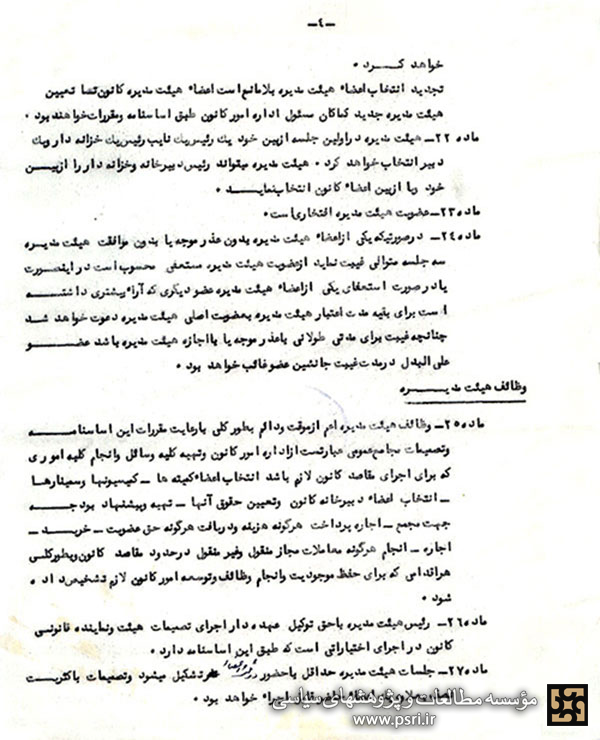 -٤-
خواهد کرد .
تجدید انتخاب اعضاء هیئت مدیره بلامانع است اعضاء هیئت مدیره کانون تا تعیین
هیئت مدیره جدید کماکان مسئول اداره امور کانون طبق اساسنامه و مقررات خواهند بود .
ماده ۲۲- هیئت مدیره در اولین جلسه از بین خود یك رئیس یك نایب رئیس یك خزانه دار و یك
دبیر انتخاب خواهد کرد . هیئت مدیره میتواند رئیس دبیرخانه و خزانه دار را از بین
خود و یا از بین اعضاء کانون انتخاب نماید .
ماده ۲۳- عضویت هیئت مدیره افتخاری است .
ماده ۲٤- در صورتیکه یکی از اعضاء هیئت مدیره بدون عذر موجه یا بدون موافقت هیئت مدیره
سه جلسه متوالی غیبت نماید از عضویت هیئت مدیره مستعفی محسوب است در اینصورت
یا در صورت استعفای یکی از اعضاء هیئت مدیره عضو دیگری که آراء بیشتری داشته
است برای بقیه مدت اعتبار هیئت مدیره بعضویت اصلی هیئت مدیره دعوت خواهد شد
چنانچه غیبت برای مدتی طولانی با عذر موجه یا با اجازه هیئت مدیره باشد عضو
علی البدل در مدت غیبت جانشین عضو غائب خواهد بود .
وظائف هیئت مدیره
ماده ۲۵- وظائف هیئت مدیره اعم از موقت و دائم بطور کلی با رعایت مقررات این اساسنامه
و تصمیمات مجامع عمومی عبارتست از اداره امور کانون و تهیه کلیه وسائل و انجام کلیه اموری
که برای اجرای مقاصد کانون لازم باشد انتخاب اعضاء کمیته ها - کمیسیونها و سمینارها
- انتخاب اعضاء دبیرخانه کانون و تعیین حقوق آنها - تهیه و پیشنهاد بودجه
جهت مجمع - اجازه پرداخت هرگونه هزینه و دریافت هرگونه حق عضویت - خرید -
اجاره - انجام هرگونه معاملات مجاز منقول و غیر منقول در حدود مقاصد کانون و بطور کلی
هر اقدامی که برای حفظ موجودیت و انجام وظائف و توسعه امور کانون لازم تشخیص داده
شود .
ماده ۲٦- رئیس هیئت مدیره با حق توکیل عهده دار اجرای تصمیمات هیئت و نماینده قانونی
کانون در اجرای اختیاراتی است که طبق این اساسنامه دارد .
ماده ۲۷- جلسات هیئت مدیره حداقل با حضور تشکیل میشود و تصمیمات با اکثریت
اجراء خواهد بود .
مؤسسه مطالعات و پژوهشهای سیاسی
www.psri.ir